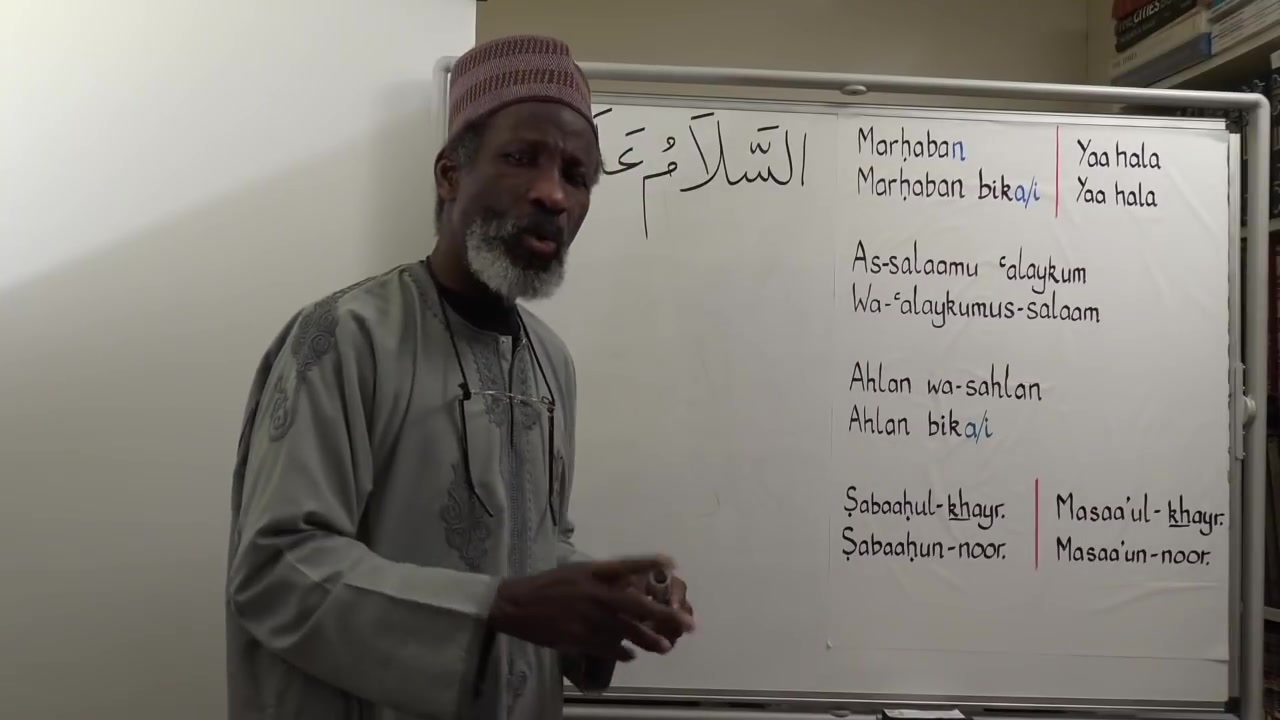 السَّلاَمُ عَلَ
Marḥaban
Marḥaban bika/i
Yaa hala
Yaa hala
As-salaamu ʿalaykum
Wa-ʿalaykumus-salaam
Ahlan wa-sahlan
Ahlan bika/i
Ṣabaaḥul-khayr.
Ṣabaaḥun-noor.
Masaa'ul-khayr.
Masaa'un-noor.